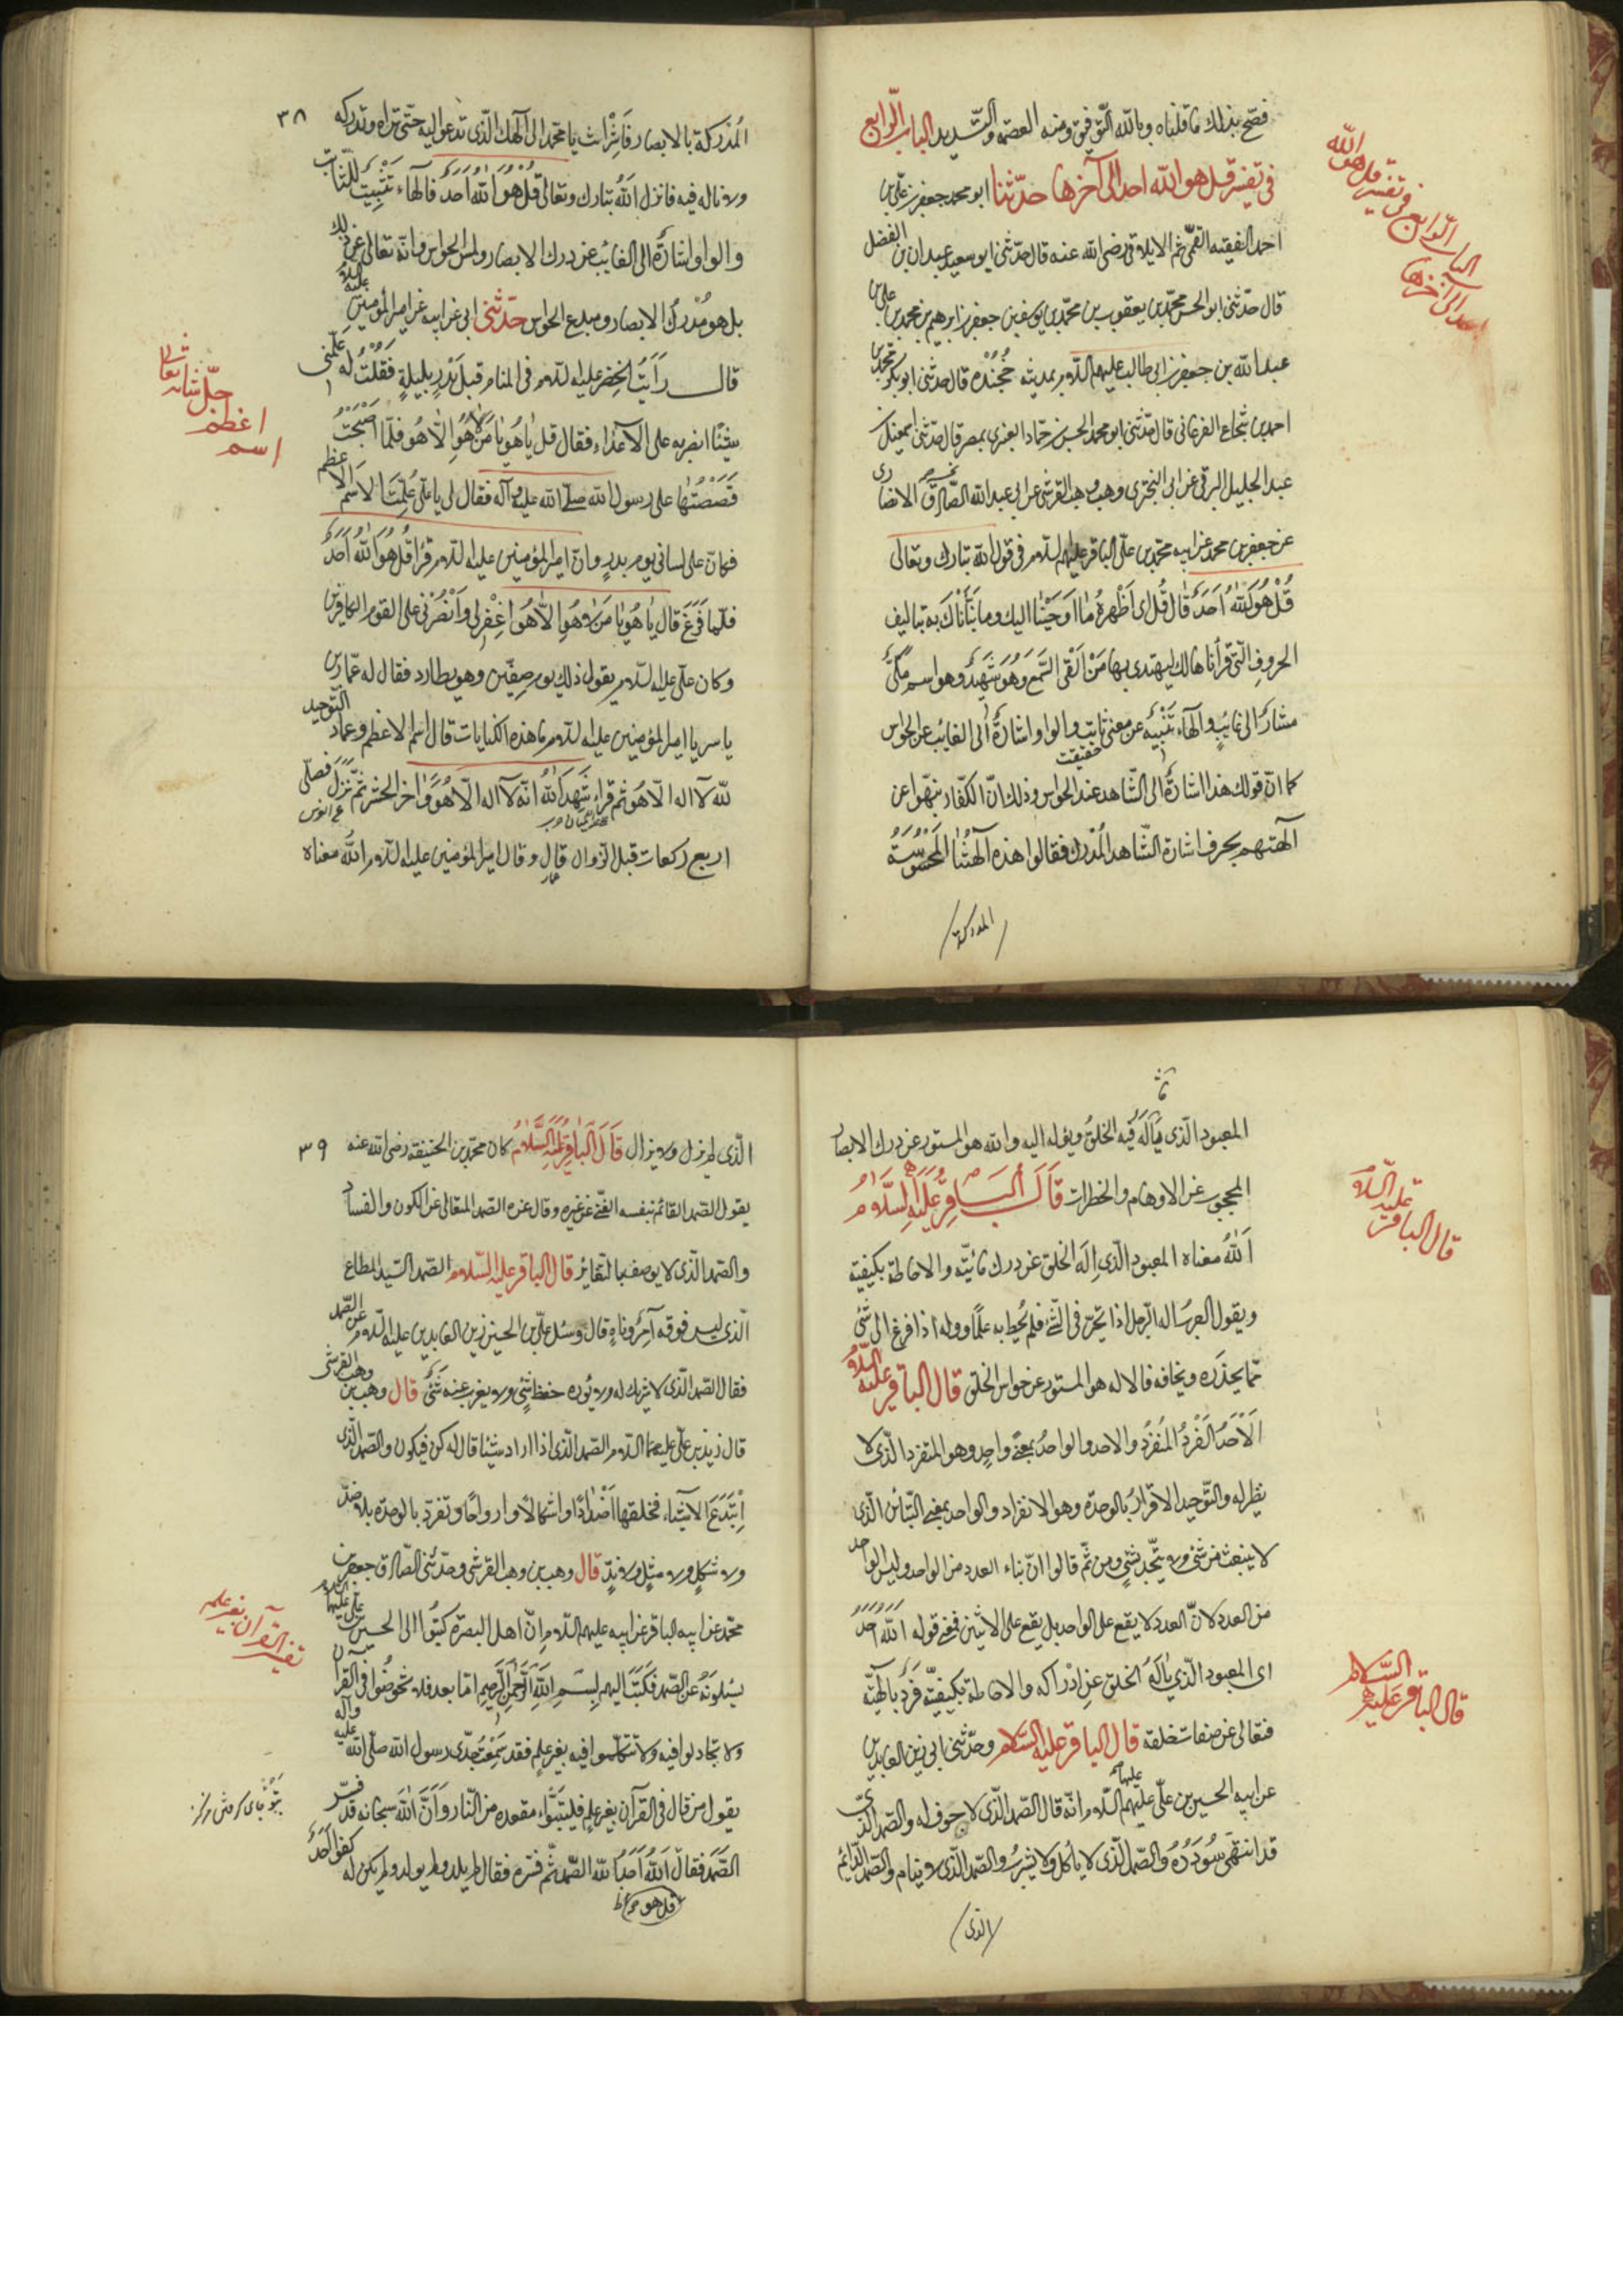 فصحّ بذلك ما قلناه وبالله التّوفيق ومنه العصمة والتّسديد الباب الرّابع
فى تفسير قل هو الله احد الى آخرها حدّثنا ابو محمد جعفر بن علىّ بن
احمد الفقيه القمّى ثم الايلاقى رضى الله عنه قال حدّثنى ابو سعيد عبدان بن الفضل
قال حدّثنى ابو الحسن محمّد بن يعقوب بن محمّد بن يوسف بن جعفر بن ابرهيم بن محمد بن على بن
عبد الله بن جعفر بن ابى طالب عليهم السّلام بمدينة خُجُنْدَه قال حدّثنى ابو بكر محمّد بن
احمد بن شجاع الفرغانى قال حدّثنى ابو محمد الحسن بن حمّاد العنبرى بمصر قال حدّثنى اسمعيل بن
عبد الجليل البرقى عن ابى البخترى وهب بن وهب القرشى عن ابى عبد الله الصّادق الانصارى
عن جعفر بن محمد عن ابيه محمّد بن علىّ الباقر عليهم السّلام فى قول الله تبارك وتعالى
قُلْ هُوَ اللهُ اَحَدٌ قال قُل اى اَظْهِرْ مٰا اَوحَيْنٰا اليك وما نَبَّأْناكَ به بتاليف
الحروفِ الّتى قرأناها لك ليهتدى بها مَنْ اَلْقَى السَّمعَ وَهُوَ شَهيدٌ وهو اسم مُكَنّىً
مشارٌ الى غائبٍ والهاء تَنْبِيهٌ عن معنى ثابت والواو اشارةٌ الى الغائب عن الحواس
حقيقت
كما انّ قولك هذا اشارةٌ الى الشّاهد عند الحواس وذلك انّ الكفّار نبّهوا عن
آلهتهم بحرف اشارة الشّاهد المُدرك فقالوا هذه آلهتُنَا المَحْسُوسَة
المدركة
الباب الرّابع فى تفسير قل هو الله
احد الى آخرها
٣٨
المُدْرَكَة بالابصار فَاَشِرْ انت يا محمّد الى الٓهك الّذى تدعو اليه حتّى نراه وندركه
ولا ناله فيه فانزل اللهُ تبارك وتعالى قُلْ هُوَ اللهُ اَحَدٌ فالهاء تَثْبِيتٌ للثّابت
والواو اشارَةٌ الى الغائب عن درك الابصار ولمس الحواس وانّه تعالى عن ذلك
بل هو مُدْرِكُ الابصار ومبدع الحواس حَدّثنى ابى عن ابيه عن امير المؤمنين عليه السّلام
قال رَاَيتُ الخضر عليه السّلام فى المنام قبل بَدْرٍ بليلةٍ فَقُلْتُ لَهُ عَلِّمنى
شيئًا انصر به على الاعدٰاءِ فقال قل يٰا هُو يٰا مَن لا هُوَ اِلّا هُو فلمّا اَصْبَحْتُ
قَصَصْتُها على رسول الله صلّى الله عليه وآله فقال لى يا علىّ عُلِّمْتَ الاسْمَ الاعظم
فكان على لسانى يوم بدرٍ وانّ امير المؤمنين عليه السّلام قرأ قُل هُوَ اللهُ اَحَدٌ
فلمّا فَرَغَ قال يٰا هُو يٰا مَن لا هُوَ اِلّا هُوَ اغْفِر لى وَانْصُرْنى على القوم الكافرين
وكان علىّ عليه السّلام يقول ذلك يوم صِفّين وهو يطارد فقال له عمّار بن
ياسر يا امير المؤمنين عليه السّلام ما هذه الكنايات قال اسم الله الاعظم وعماد التّوحيد
لله لا اله الّا هُو ثم قرأ شَهِدَ اللهُ انّه لا اله الّا هُوَ وَآخر الحشر ثمّ نَزَلَ فصلّى
اربع ركعات قبل الزّوال قال وقال امير المؤمنين عليه السّلام اللهُ معناه
اسم اعظم جلّ شانه تعالى شانه
المعبود الّذى يَاْلَهُ فيه الخلقُ ويوله اليه والله هو المستور عن درك الابصار
المحجوب عن الاوهام والخطرات قَالَ البَاقِرُ عَلَيْهِ السَّلَام
اَللهُ معناه المعبود الّذى اَلِهَ الخلق عن درك مائيّته والاحاطة بكيفيّته
ويقول العرب اله الرّجل اذا تحيّر فى الشّىء فلم يُحِط به عِلمًا ووله اذا فزع الى شىْءٍ
ممّا يحذره ويخافه فالاله هو المستور عن حواس الخلق قال الباقر عليه السّلام
اَلْاَحَدُ الفَرْدُ المُتَفَرِّدُ والاحد والواحد بمعنى واحِدٍ وهو المتفرّد الّذى لا
نظير له والتّوحيد الاقرارُ بالوحدة وهو الانفراد والواحد بمعنى المتبائن الّذى
لا ينبعث من شىء ولا يتّحد بشىءٍ ومن ثَمَّ قالوا انّ بناء العدد من الواحد وليس الواحد
من العدد لانّ العدد لا يقع على الواحد بل يقع على الاثنين فمعنى قوله اَللهُ اَحَدٌ
اى المعبود الّذى يَاْلَهُ الخلق عن اِدْراكه والاحاطة بكيفيّته فَردٌ بالهيّته
فتعالى عن صفات خلقه قال الباقر عليه السّلام وحدّثنى ابى زين العابدين
عن ابيه الحسين بن علىّ عليهم السّلام انّه قال الصّمد الّذى لا جوف له والصّمد الّذى
قد انتهَى سُؤدَدُهُ والصّمد الّذى لا ياكل ولا يشربُ والصّمد الّذى لا ينام والصّمد الدّائم
الذى
قال الباقر عليه السّلام
قال الباقر عليه السّلام
٣٩
الّذى لم يزل ولا يزال قَالَ البَاقِرُ عَلَيْهِ السَّلَامُ كان محمّد بن الحنفيّة رضى الله عنه
يقول الصّمد القائم بنفسه الغنى عن غيره وقال غيره الصّمد المتعالى عن الكون والفساد
والصّمد الّذى لا يوصف بالتّغاير قال الباقر عليه السّلام الصّمد السّيّد المطاع
الّذى ليس فوقه آمِرٌ وناهٍ قال وسئل علىّ بن الحسين زين العابدين عليه السّلام عن الصّمد
فقال الصّمد الّذى لا شريك له ولا يَؤده حفظ شىءٍ ولا يعزب عنه شىْءٌ قال وهب بن وهب القرشى
قال زيد بن علىّ عليهما السّلام الصّمد الّذى اذا اراد شيئًا قال له كن فيكون والصّمد الّذى
اِبْتَدَعَ الاشياء فخلقها اَضْدادًا واشكالًا وازواجًا وتفرّد بالوحدة بلا ضدّ
ولا شكلٍ ولا مثلٍ ولا نِدٍّ قال وهب بن وهب القرشى وحدّثنى الصّادق جعفر بن
محمّد عن ابيه الباقر عن ابيه عليهم السّلام انّ اهل البصرة كَتَبُوا الى الحسين بن علىّ عليهما السّلام
يسئلونَهُ عن الصّمد فكَتَبَ اليهم بِسمِ اللهِ الرّحمٰنِ الرّحيمِ امّا بعد فلا تخوضُوا فى القرآن
ولا تجادلوا فيه ولا تتكلّموا فيه بغير علمٍ فقد سَمِعْتُ جدّى رسول الله صلّى الله عليه وآله
يقول من قال فى القرآن بغير علمٍ فليتبوّء مقعده من النّار وَاَنَّ اللهَ سبحانه قد فَسّر
الصَّمَد فقال اَللهُ اَحَدٌ اللهُ الصّمد ثمّ فسّره فقال لم يلد ولم يولد ولم يكن له كفوًا اَحَدٌ
تفسير القرآن بغير علم